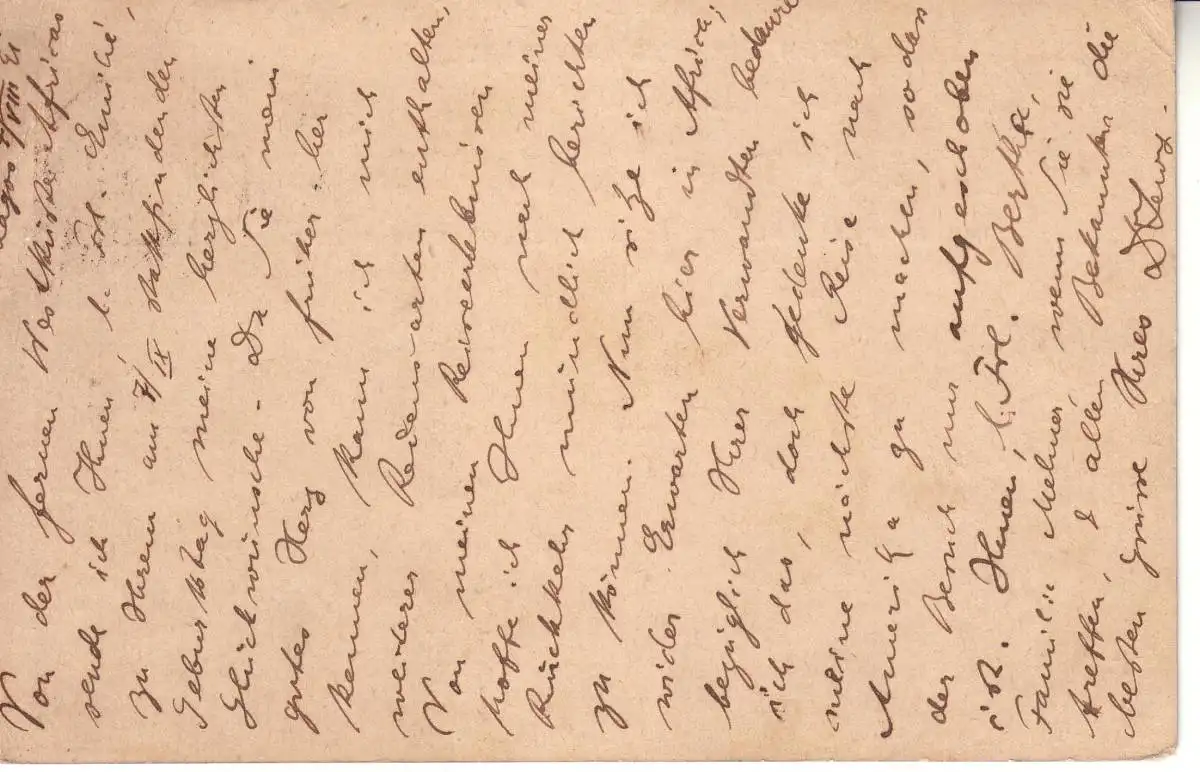 Lagos 7/VIII 21
Von der fernen Westküste Afrikas
sende ich Ihnen, l. Frl. Emilie,
zu Ihrem am 7/IX stattfindenden
Geburtstag meine herzlichsten
Glückwünsche. Da Sie mein
gutes Herz von früher her
kennen, kann ich mich
weiterer Redensarten enthalten,
Von meinen Reiseerlebnissen
hoffe ich Ihnen nach meiner
Rückkehr mündlich berichten
zu können. Nun sitze ich
wider Erwarten hier in Afrika,
bezüglich Ihrer Verwandten bedaure
ich das, doch gedenke ich
meine nächste Reise nach
Amerika zu machen, so dass
der Besuch nur aufgeschoben
ist. Ihnen, l. Frl. Bertha,
Familie Mehner, wenn Sie sie
treffen, & allen Bekannten die
besten Grüsse Ihres